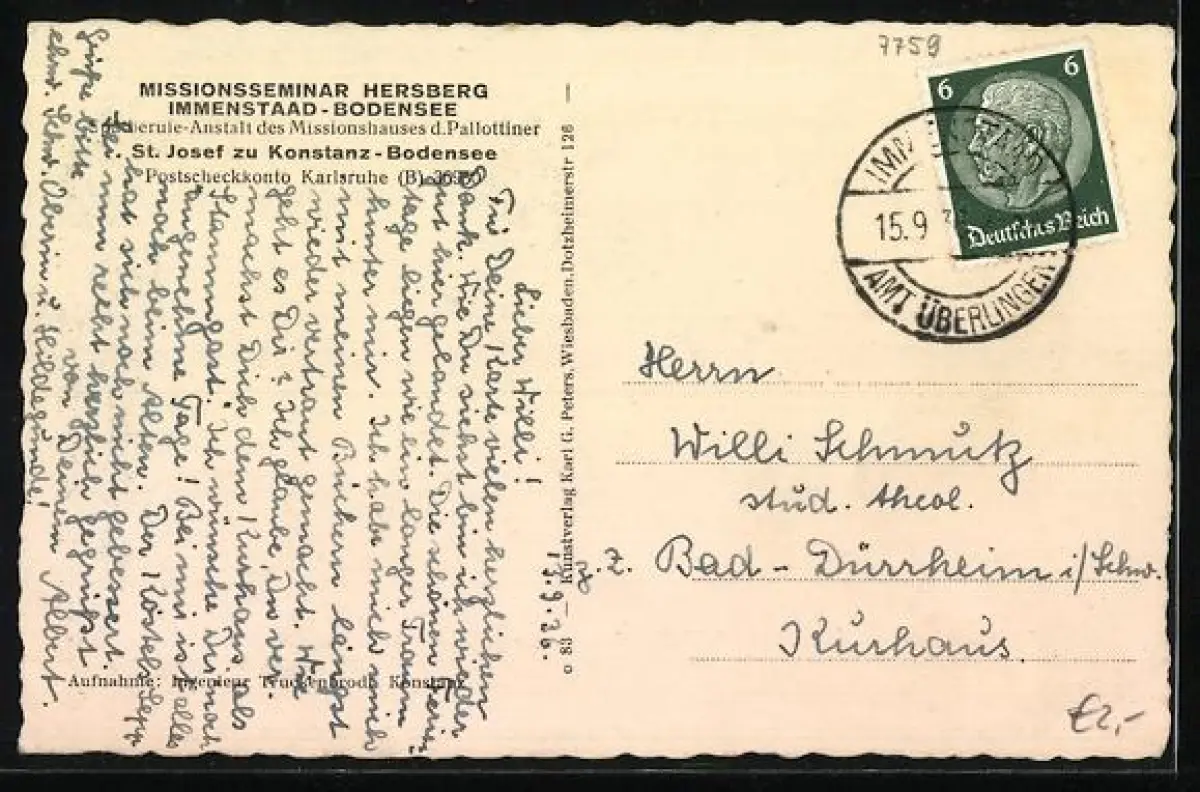 7759
MISSIONSSEMINAR HERSBERG
IMMENSTAAD-BODENSEE
-Anstalt des Missionshauses d. Pallottiner
St. Josef zu Konstanz-Bodensee
Postscheckkonto Karlsruhe (B)
Lieber Willi!
Für Deine Karte vielen herzlichen
Dank. Wie Du siehst bin ich wieder
gut hier gelandet. Die schönen Ferien-
tage liegen wie ein langer Traum
hinter mir. Ich habe mich
mit meinen Büchern längst
wieder vertraut gemacht. Wie
geht es Dir? Ich glaube, Du ver-
machst Dich dem Kurhaus als
Stammgast. Ich wünsche Dir noch
angenehme Tage! Bei mir ist alles
noch beim Alten. Der Köstels Sepp
hat sich noch nicht gebessert.
Sei nun recht herzlich gegrüsst
von Deinem Albert.
Grüße bitte
ehrw. Schw. Oberin u. Hildegunde!
Aufnahme: Ingenieur Truckenbrodt, Konstanz
o 83 — Kunstverlag Karl G. Peters, Wiesbaden, Dotzheimerstr 126 —
6 6
Deutsches Reich
IMMENSTAAD
15.9
AMT ÜBERLINGEN
Herrn
Willi Schmutz
stud. theol.
z. Z. Bad-Dürrheim i/Schw.
Kurhaus.
€2,-